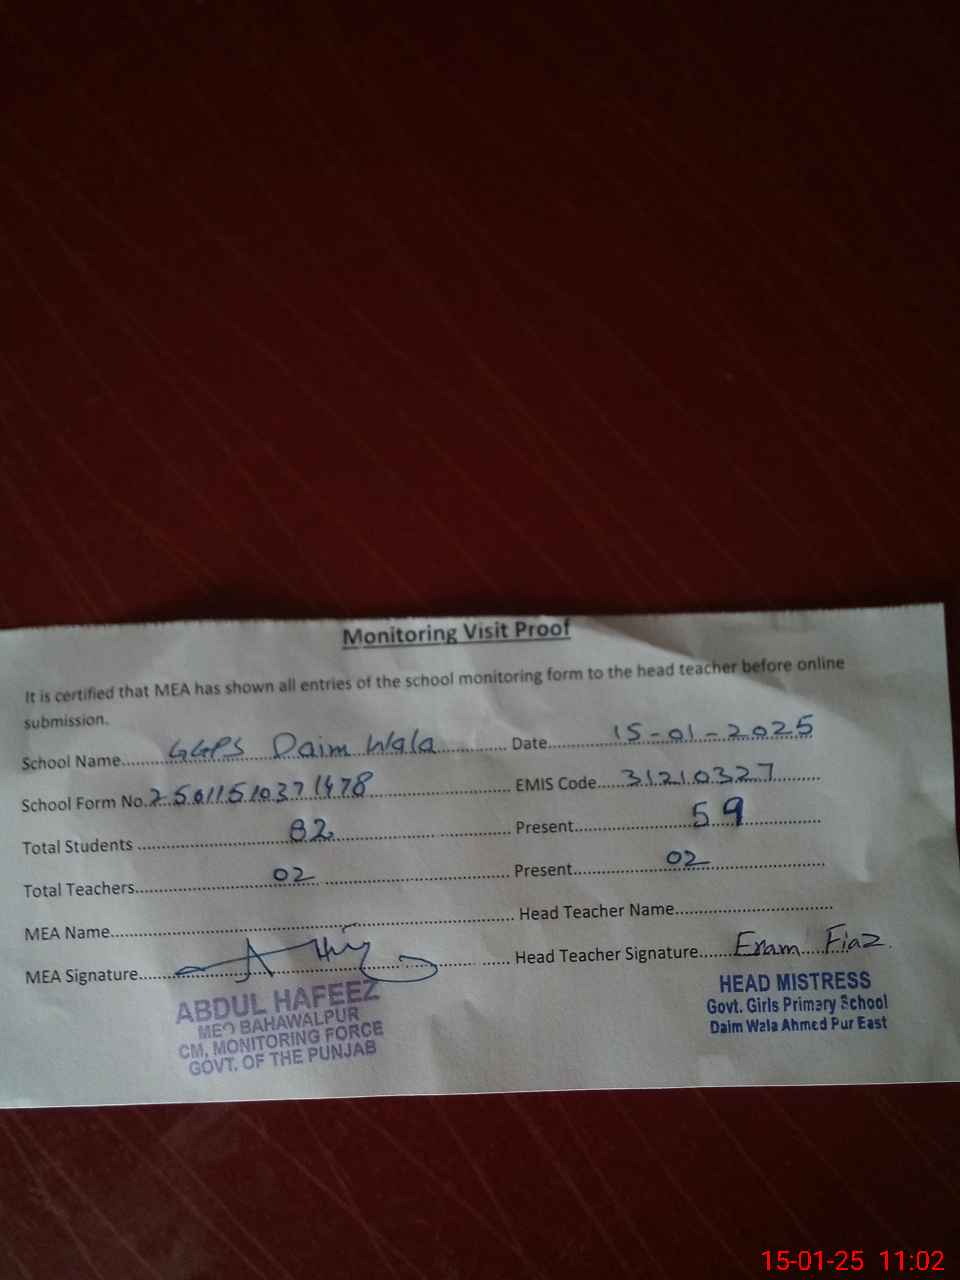 Monitoring Visit Proof
It is certified that MEA has shown all entries of the school monitoring form to the head teacher before online
submission.
School Name GGPS Daim Wala Date 15-01-2025
School Form No. 2501151037 1478 EMIS Code 31210327
Total Students 82 Present 59
Total Teachers 02 Present 02
MEA Name Head Teacher Name
MEA Signature Head Teacher Signature Eram Fiaz
ABDUL HAFEEZ
MEO BAHAWALPUR
CM, MONITORING FORCE
GOVT. OF THE PUNJAB
HEAD MISTRESS
Govt. Girls Primary School
Daim Wala Ahmed Pur East
15-01-25 11:02